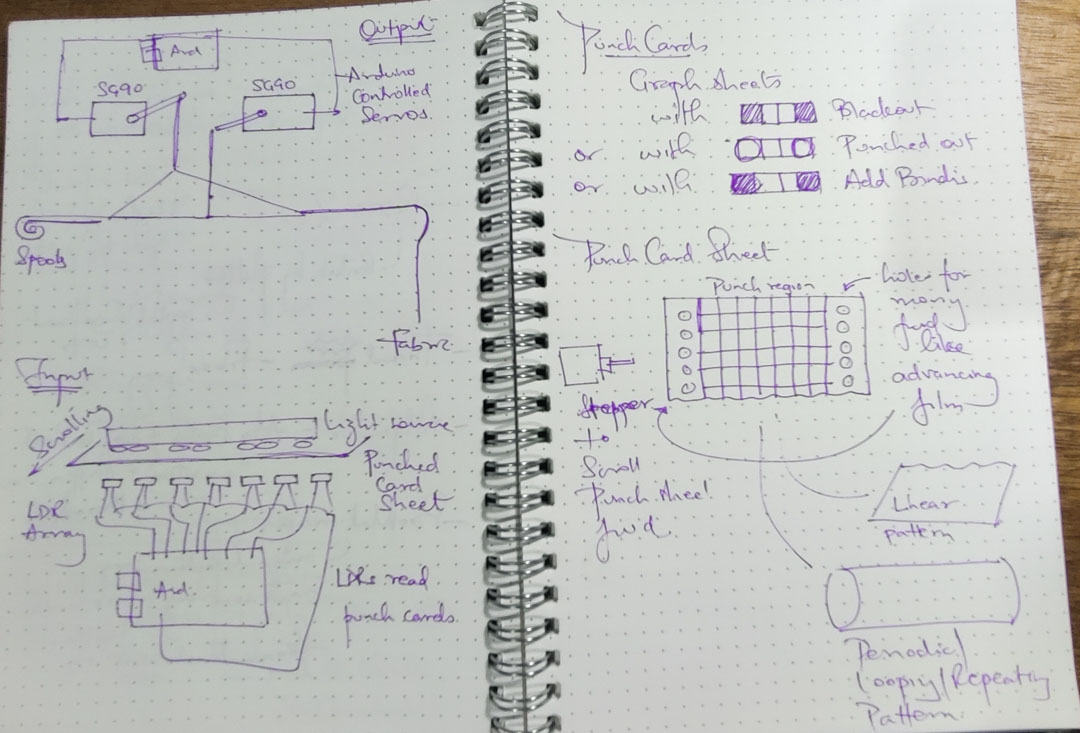 Output
Ard
SG90
SG90
Arduino
Controlled
Servos.
Spools
Fabric
Input
Scrolling
Light source
Punched
Card
Sheet
LDR
Array
Ard.
LDRs read
punch cards.
Punch Cards
Graph sheets
with Blackout
or with Punched out
or with Add Bindis.
Punch Card Sheet
Punch region
holes for
feed
like
advancing
film
Stepper
to
Scroll
Punch sheet
fwd.
Linear
pattern
Periodic/
Looping/Repeating
Pattern.